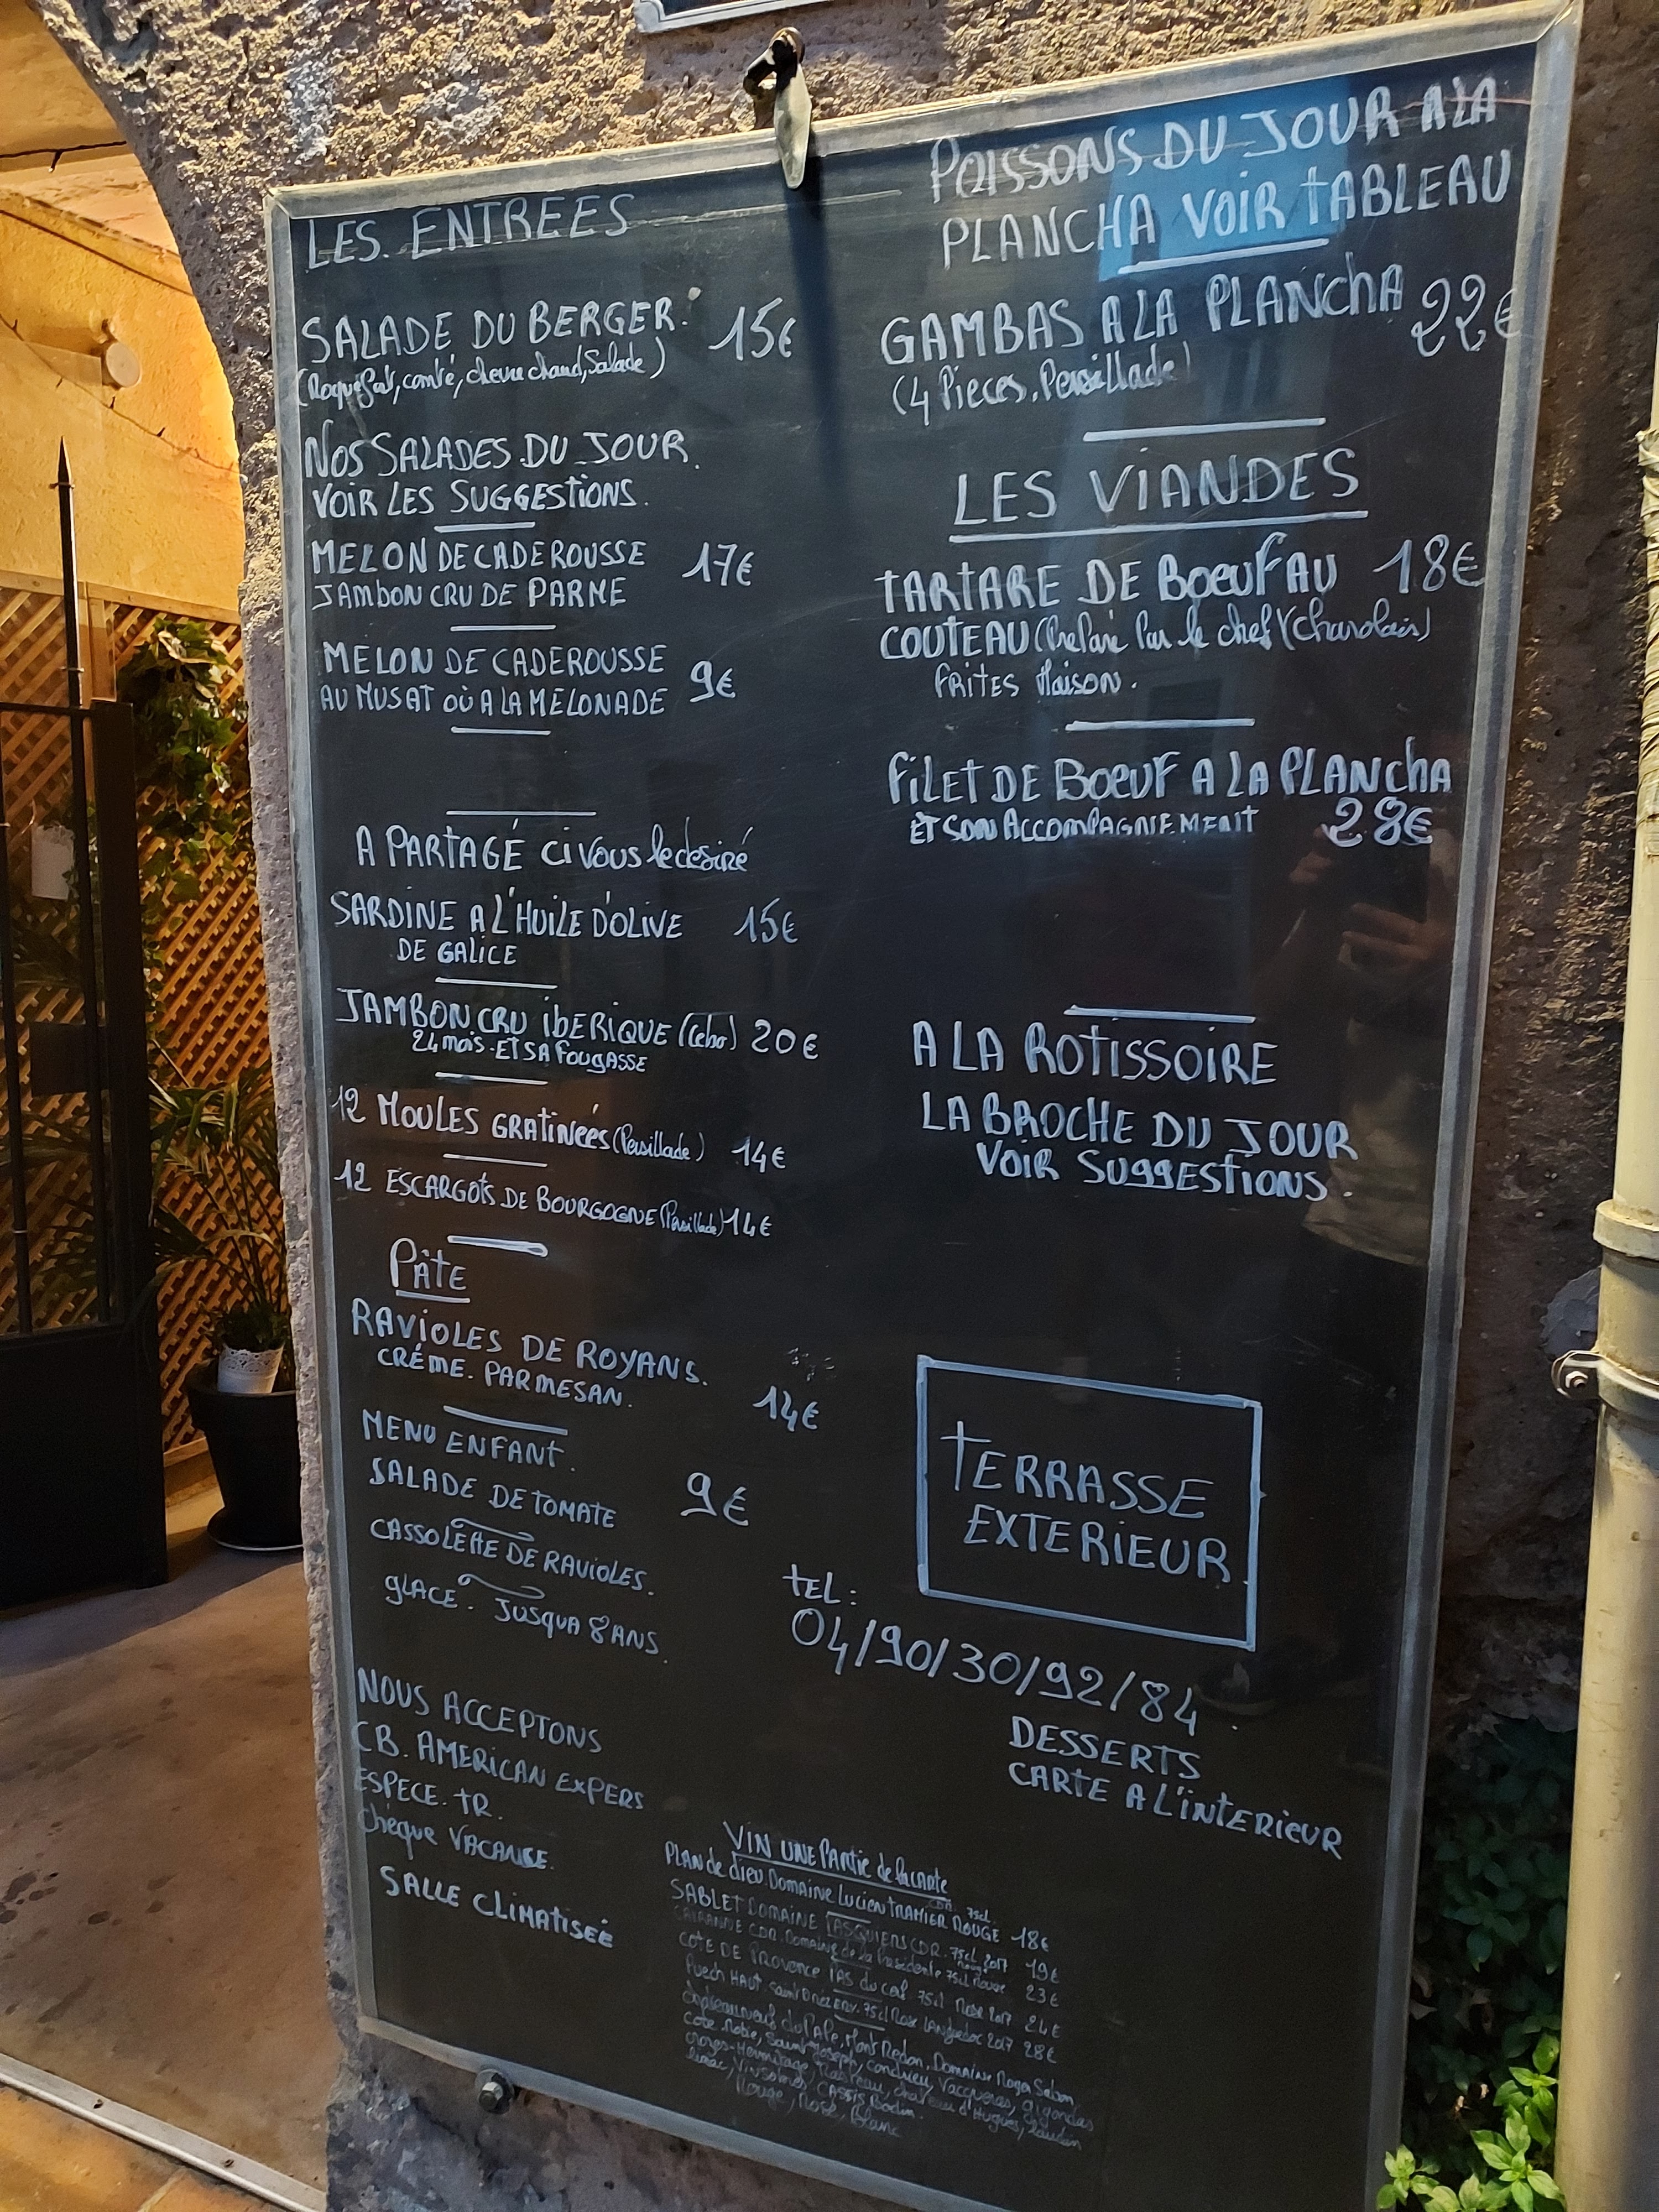 LES ENTREES
SALADE DU BERGER. 15€
(Roquefort, comté, chevre chaud, Salade)
NOS SALADES DU JOUR.
VOIR LES SUGGESTIONS.
MELON DE CADEROUSSE 17€
JAMBON CRU DE PARME
MELON DE CADEROUSSE
AU MUSAT OÙ A LA MELONADE 9€
A PARTAGÉ Ci vous le desiré
SARDINE A L'HUILE D'OLIVE 15€
DE GALICE
JAMBON CRU IBERIQUE (Cebo) 20€
24 mois. ET SA FOUGASSE
12 MOULES GRATINÉES (Persillade) 14€
12 ESCARGOTS DE BOURGOGNE (Persillade) 14€
PÂTE
RAVIOLES DE ROYANS.
CRÉME. PARMESAN. 14€
MENU ENFANT.
SALADE DE TOMATE 9€
CASSOLETTE DE RAVIOLES.
GLACE. JUSQUA 8 ANS.
NOUS ACCEPTONS
CB. AMERICAN EXPERS
ESPECE. TR.
Chèque VACANSE.
SALLE CLIMATISEÉ
POISSONS DU JOUR A LA
PLANCHA VOIR TABLEAU
GAMBAS A LA PLANCHA 22€
(4 Pieces. Persillade)
LES VIANDES
TARTARE DE BOEUF AU 18€
COUTEAU (Preparé Par le chef) (Charolais)
FRITES Maison.
FILET DE BOEUF A LA PLANCHA
ET SON ACCOMPAGNEMENT 28€
A LA ROTISSOIRE
LA BROCHE DU JOUR
VOIR SUGGESTIONS.
TERRASSE
EXTERIEUR
TEL:
04/90/30/92/84
DESSERTS
CARTE A L'INTERIEUR
VIN UNE Partie de la carte
PLAN de dieu Domaine Lucien TRAMIER ROUGE CDR. 75cl 18€
SABLET DOMAINE PASQUIERS CDR. 75cl 2017 19€
CAIRANNE CDR. Domaine de la Presidente 75cl Rouge 23€
COTE DE PROVENCE PAS du cerf 75cl Rosé 2017 24€
Puech HAUT Saint Drezery. 75cl Rose LANguedoc 2017 28€
Chateauneuf du Pape, Mont Redon, Domaine Roger Sabon
Cote Rotie, Saint Joseph, Condrieu, Vacqueras, gigondas
Crozes-Hermitage, Rasteau, chateau d'Hugues,
Vinsobres, CASSIS Bodin.
Rouge, Rosé, Blanc